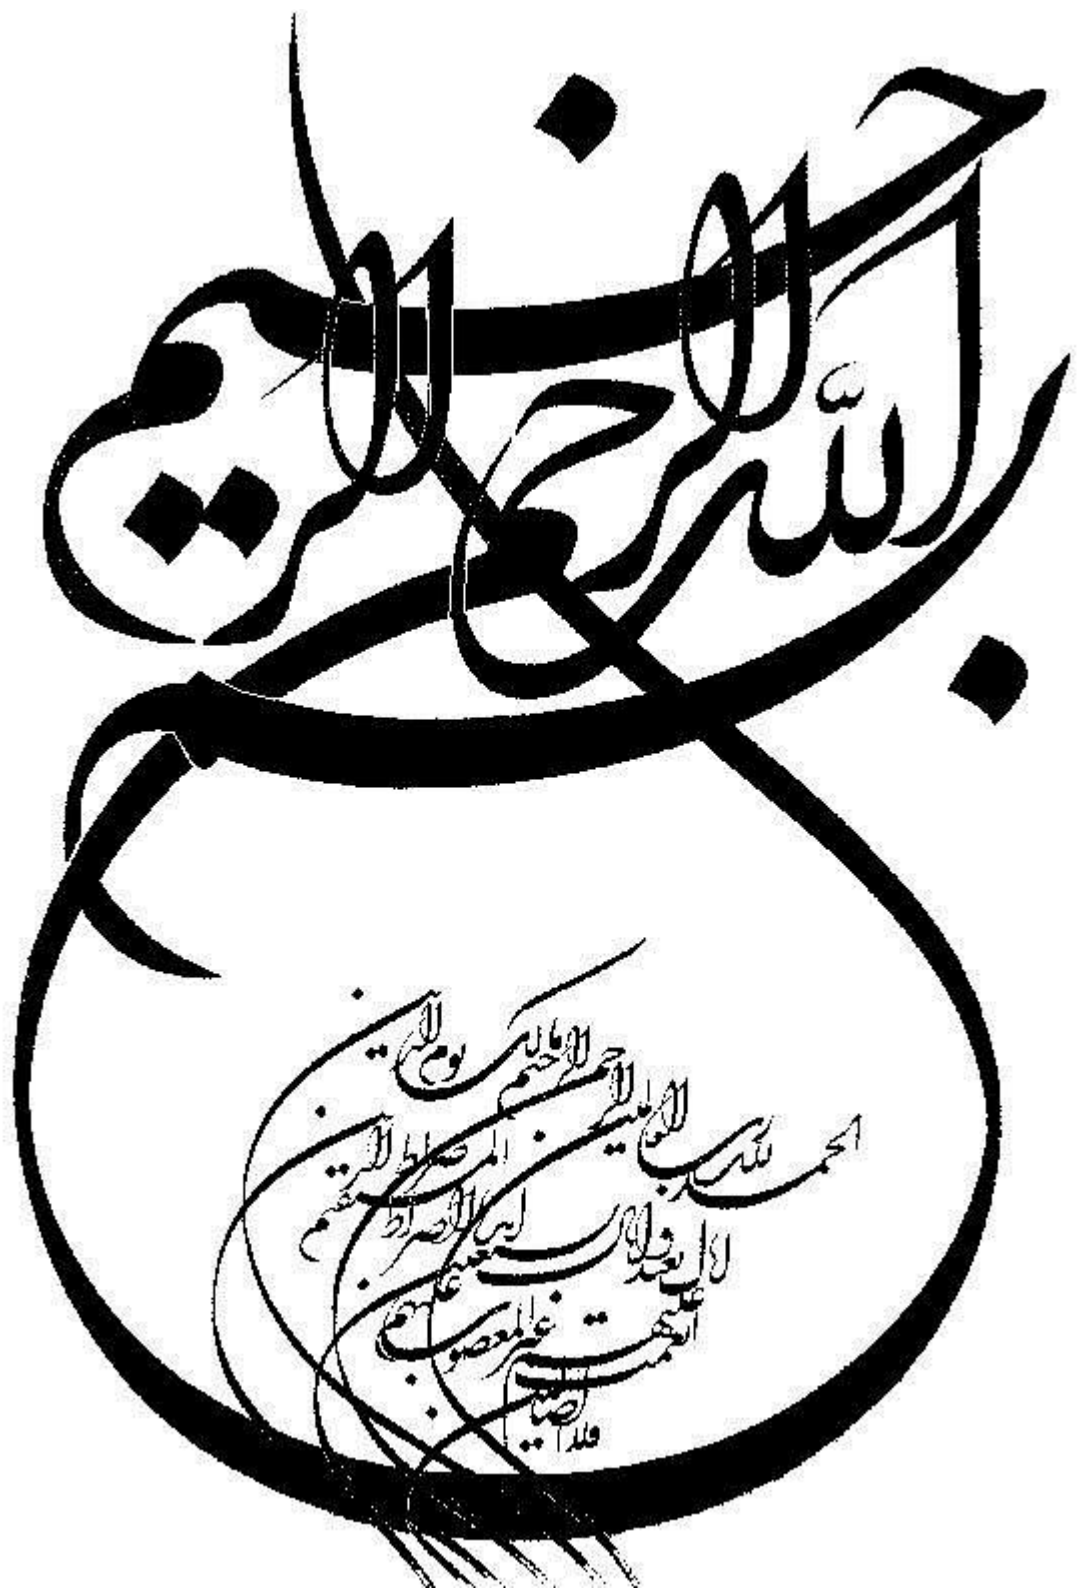 بسم الله الرحمن الرحيم
الحمد لله رب العالمين
الرحمن الرحيم
مالك يوم الدين
نعبد
اهدنا الصراط المستقيم
صراط الذين
أنعمت عليهم
غير المغضوب
عليهم
ولا الضالين